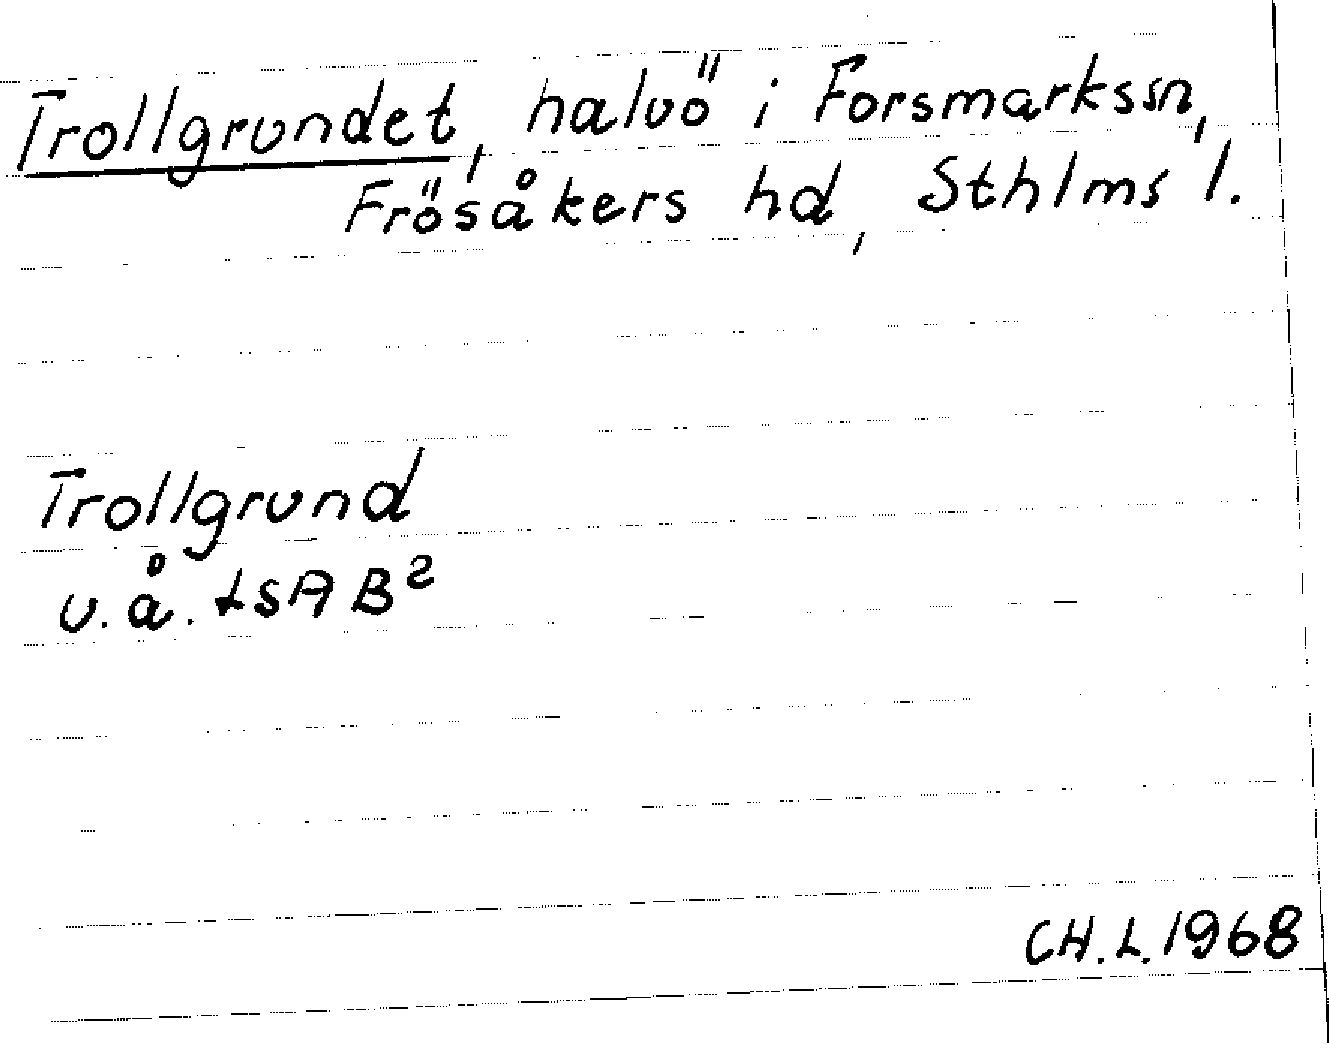 Trollgrundet, halvö i Forsmarkssn,
Frösåkers hd, Sthlms l.
Trollgrund
u. å. LSA B²
CH.L. 1968